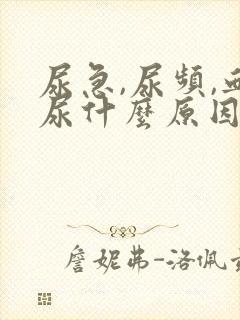 尿急,尿頻,血
尿什麼原因
詹妮弗-洛佩茲